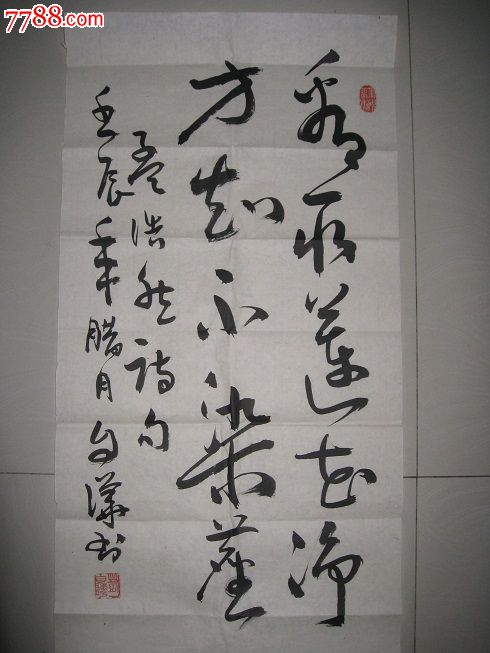 7788.com
看取蓮花净
方知不染塵
孟浩然诗句
壬辰年腊月
书